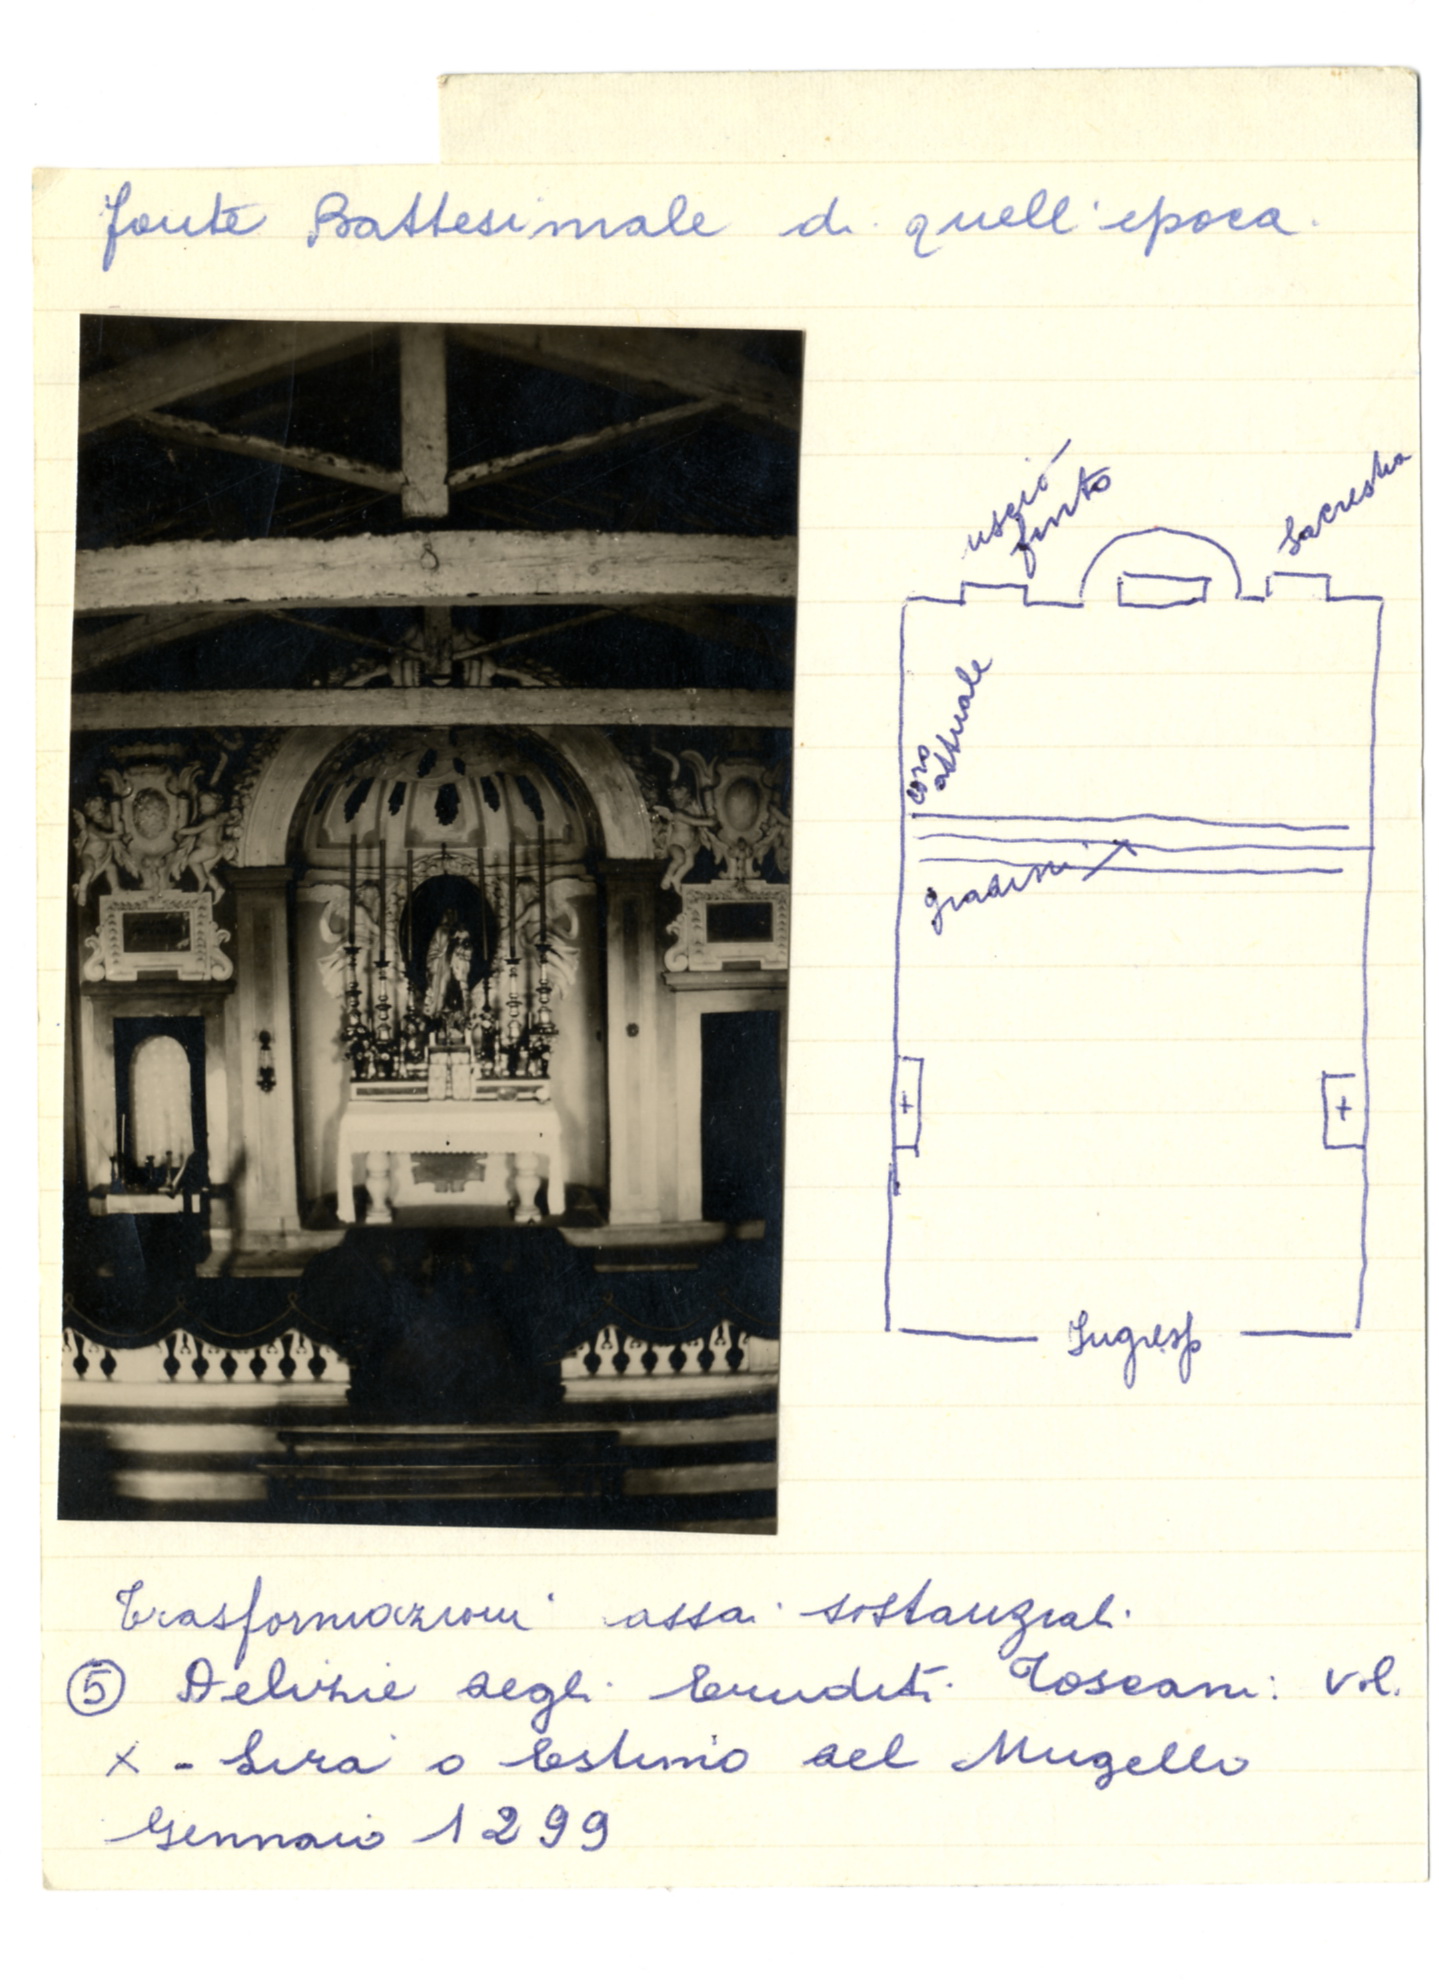 fonte Battesimale di quell'epoca.
uscio
finto
Sacrestia
coro
attuale
gradini
Ingresso
Trasformazioni assai sostanziali.
⑤ Delizie degli Eruditi Toscani: vol.
X - Lira o Estimo del Mugello
Gennaio 1299